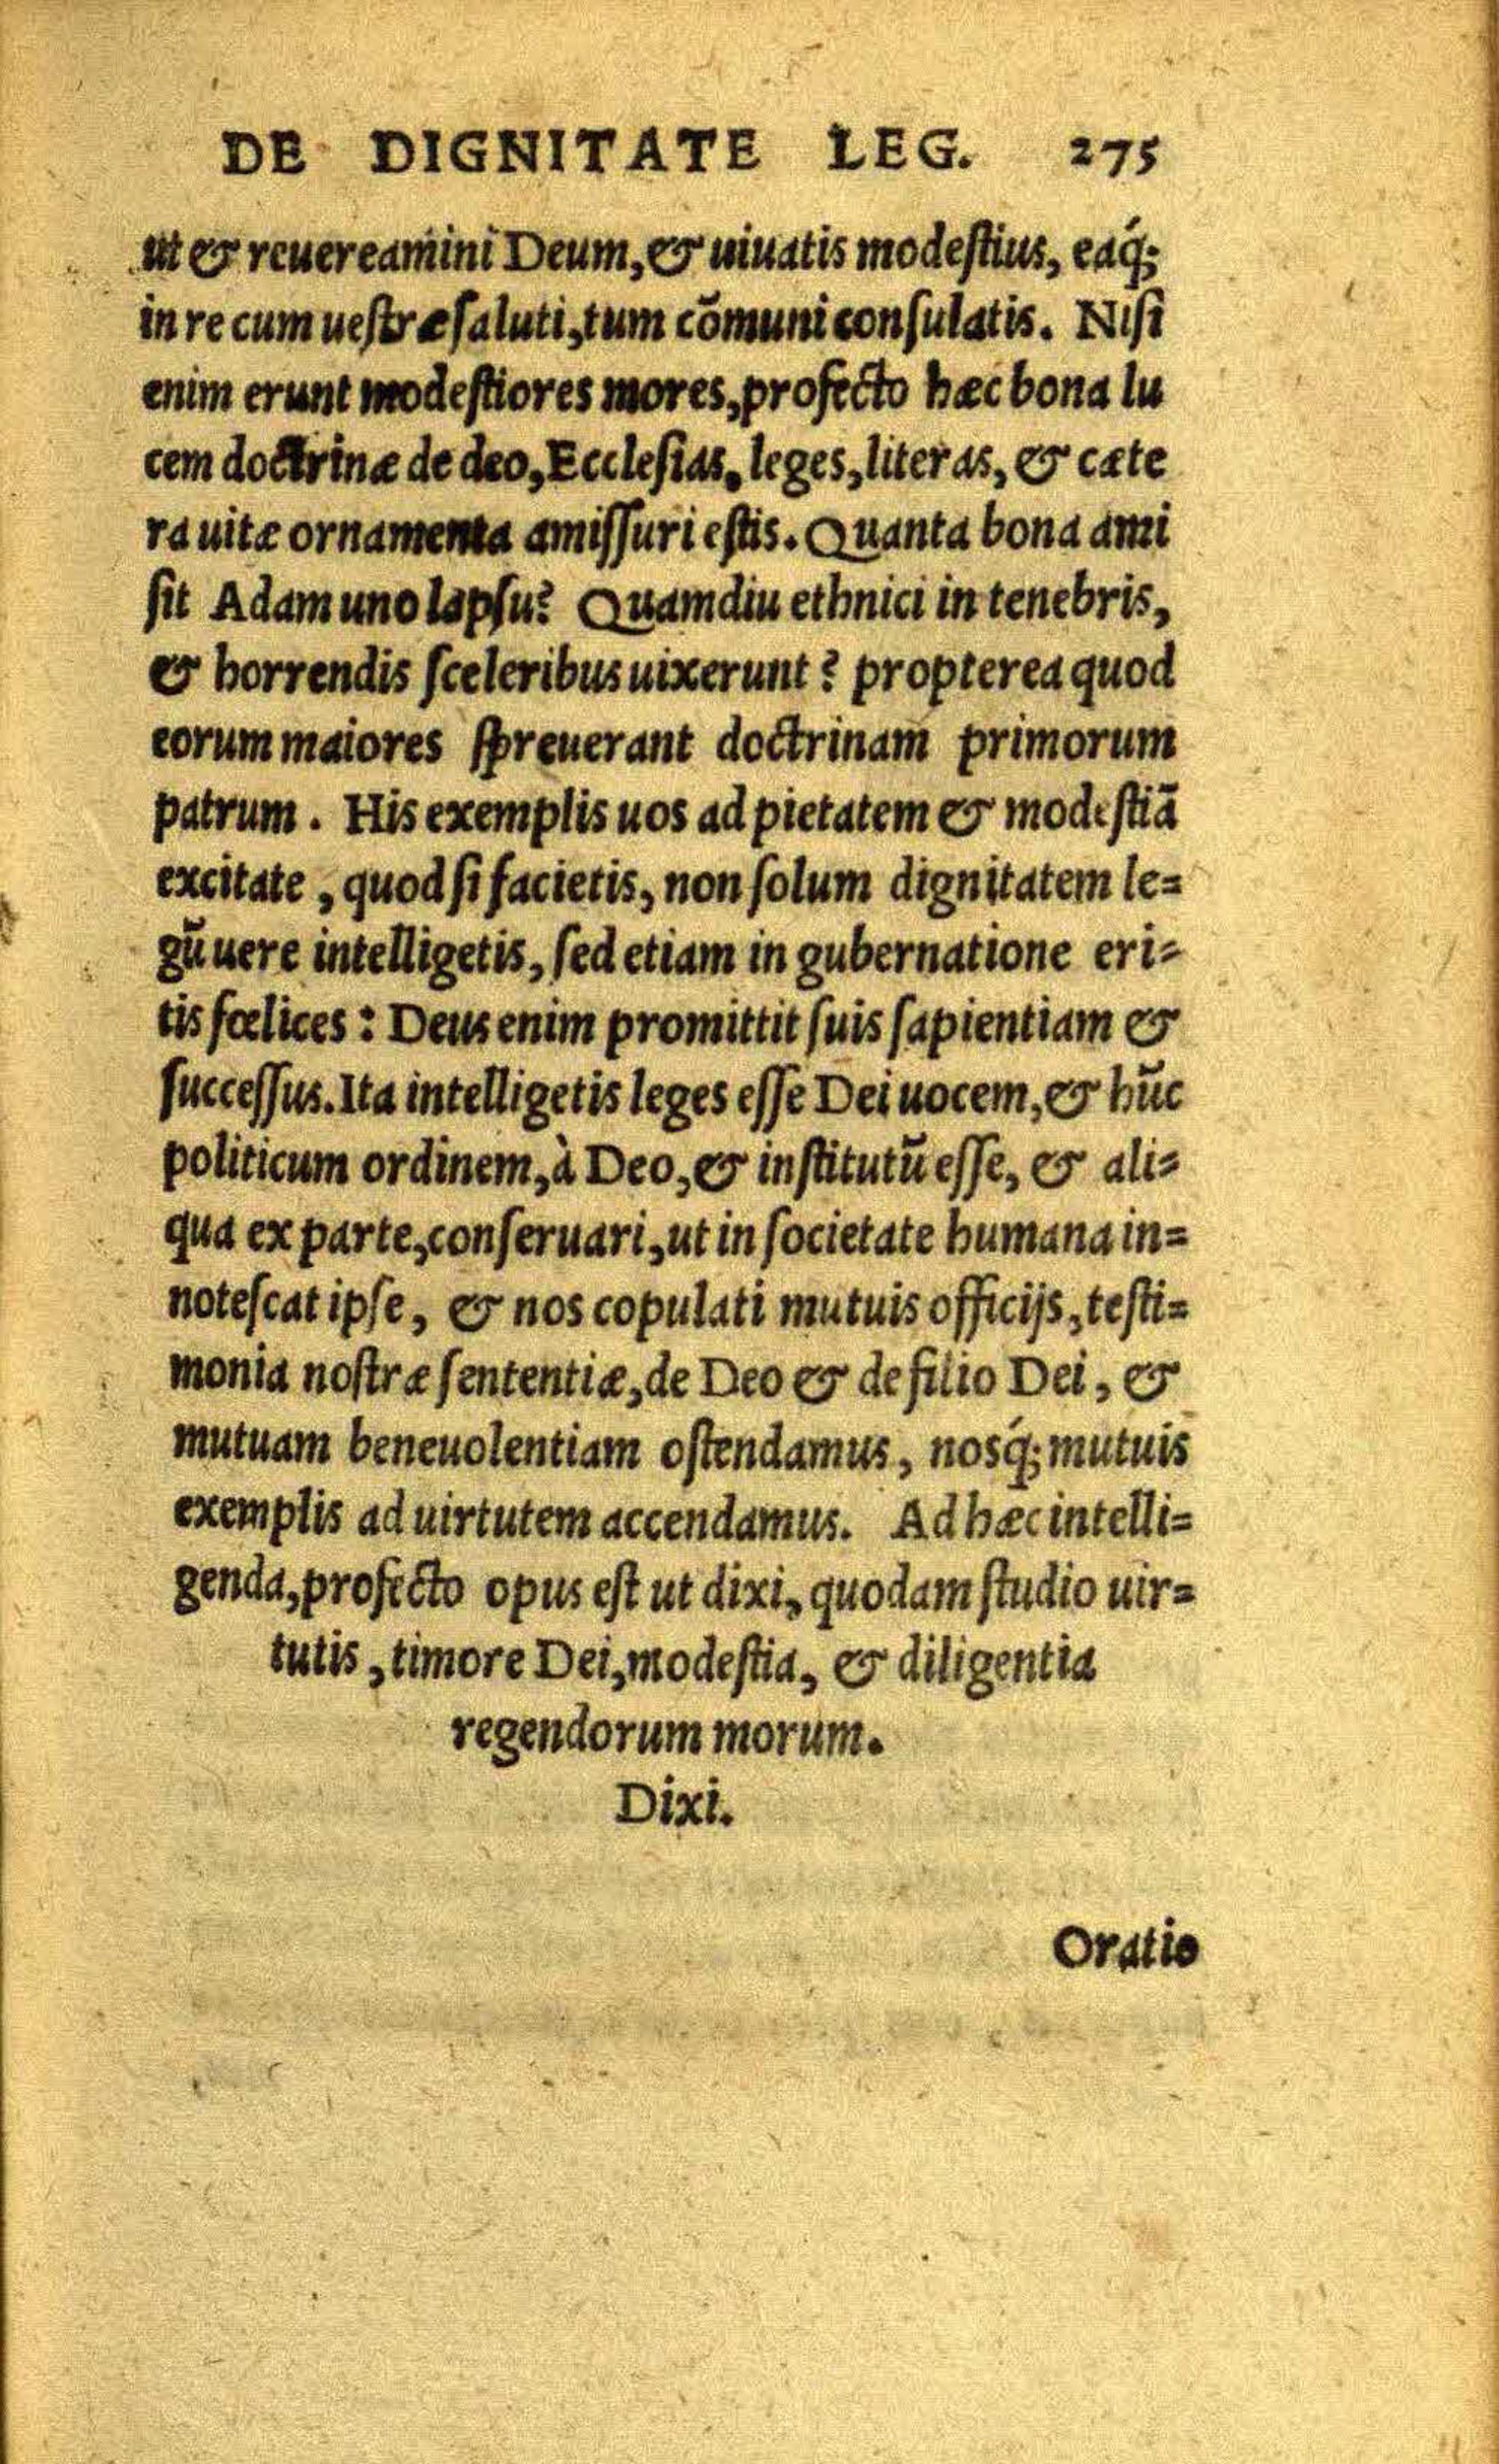 DE DIGNITATE LEG. 275
ut & reuereamini Deum, & uiuatis modestius, eaq́;
in re cum uestræ saluti, tum cōmuni consulatis. Nisi
enim erunt modestiores mores, profecto hæc bona lu
cem doctrinæ de deo, Ecclesias, leges, literas, & cæte
ra uitæ ornamenta amissuri estis. Quanta bona ami
sit Adam uno lapsu? Quamdiu ethnici in tenebris,
& horrendis sceleribus uixerunt? propterea quod
eorum maiores spreuerant doctrinam primorum
patrum. His exemplis uos ad pietatem & modestiā
excitate, quod si facietis, non solum dignitatem le=
gū uere intelligetis, sed etiam in gubernatione eri=
tis fœlices: Deus enim promittit suis sapientiam &
successus. Ita intelligetis leges esse Dei uocem, & hūc
politicum ordinem, à Deo, & institutū esse, & ali=
qua ex parte, conseruari, ut in societate humana in=
notescat ipse, & nos copulati mutuis officijs, testi=
monia nostræ sententiæ, de Deo & de filio Dei, &
mutuam beneuolentiam ostendamus, nosq́; mutuis
exemplis ad uirtutem accendamus. Ad hæc intelli=
genda, profecto opus est ut dixi, quodam studio uir=
tutis, timore Dei, modestia, & diligentia
regendorum morum.
Dixi.
Oratio